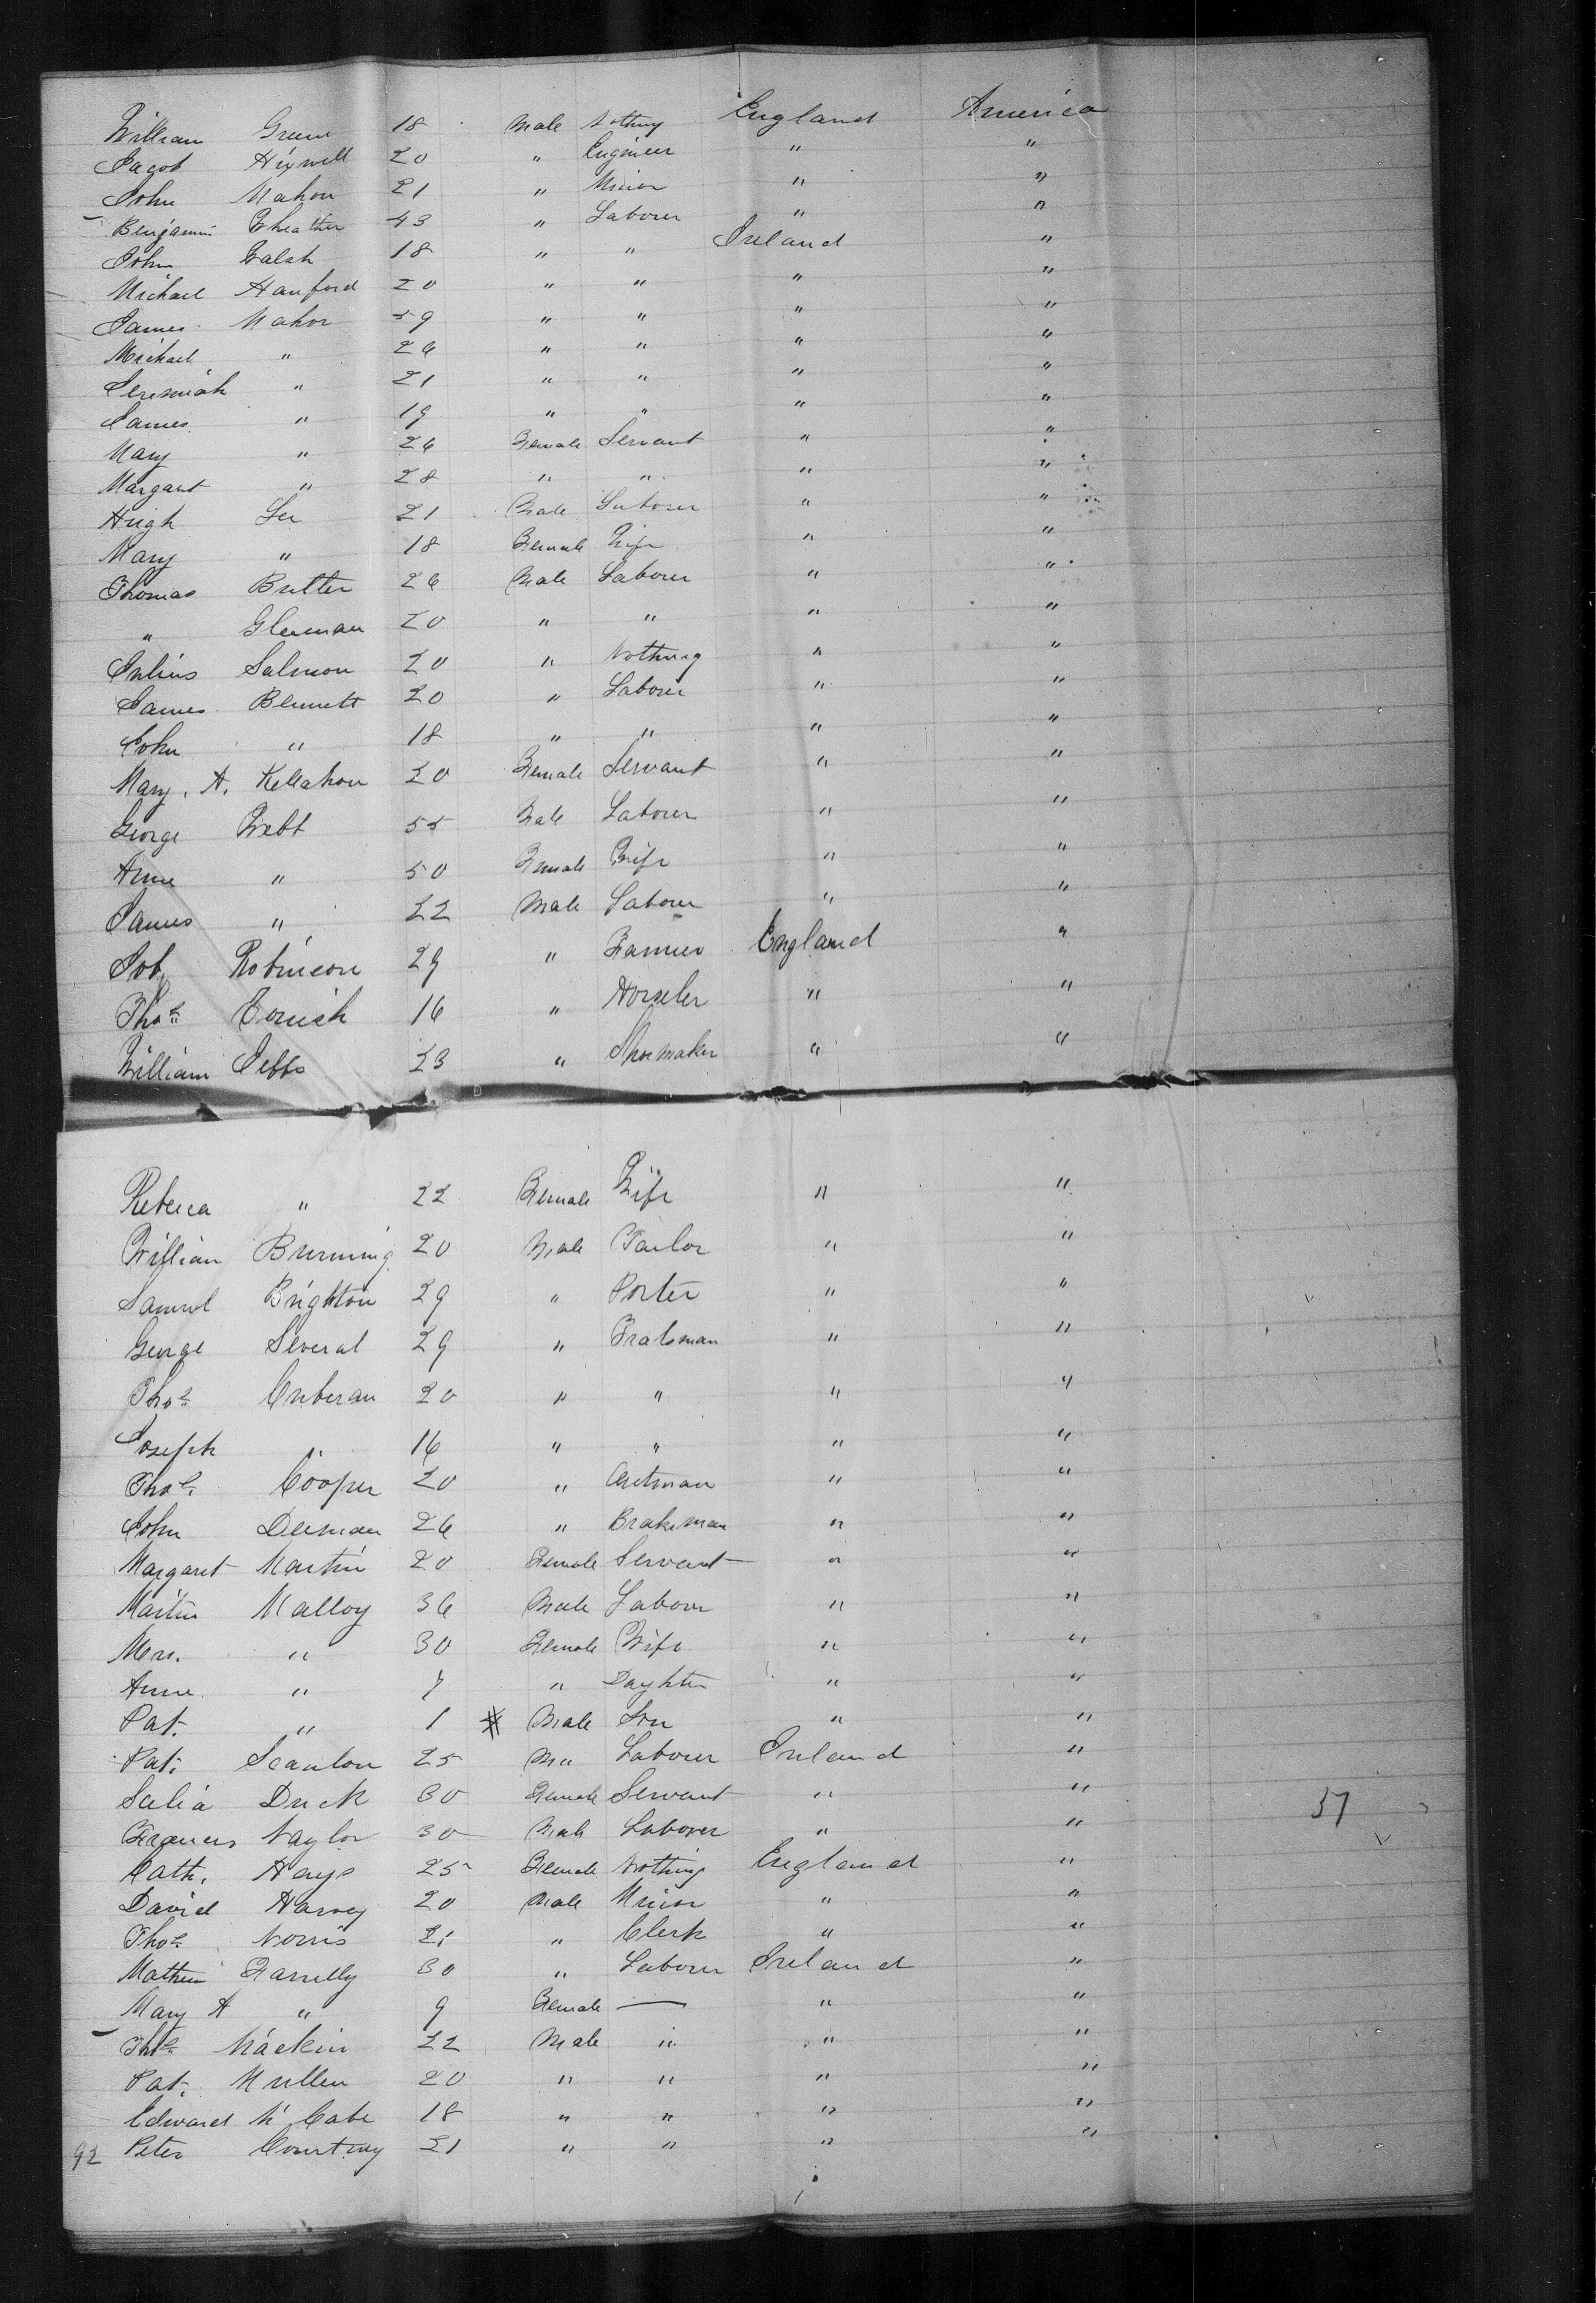 William Green 18 Male Nothing England America
Jacob Hixwell 20 " Engineer " "
John Mahon 21 " Minor " "
Benjamin Wheather 43 " Laborer " "
John Walsh 18 " " Ireland "
Michael Hanford 20 " " " "
James Mahor 59 " " " "
Michael " 26 " " " "
Jeremiah " 21 " " " "
James " 19 " " " "
Mary " 26 Female Servant " "
Margaret " 28 " " " "
Hugh Lee 21 Male Laborer " "
Mary " 18 Female Wife " "
Thomas Butter 26 Male Laborer " "
" Gleeman 20 " " " "
Julius Salmon 20 " Nothing " "
James Bennett 20 " Laborer " "
John " 18 " " " "
Mary. A. Kellahon 20 Female Servant " "
George Webb 55 Male Laborer " "
Anne " 50 Female Wife " "
James " 22 Male Labour " "
Job Robinson 29 " Farmer England "
Thos Cornish 16 " Horseler " "
William Jebbs 23 " Shoemaker " "
Rebecca " 22 Female Wife " "
William Burning 20 Male Tailor " "
Samuel Brighton 29 " Porter " "
George Several 29 " " "
Thos 20 " " " "
Joseph " 16 " " " "
Thos. Cooper 20 " " "
John Deeman 26 " Brakeman " "
Margaret Martin 20 Female Servant " "
Martin Malloy 36 Male Labour " "
Mrs. " 30 Female Wife " "
Anne " 7 " Daughter " "
Pat. " 1 # Male Son " "
Pat. Scanlon 25 Ma Labour Ireland "
Selia Duck 30 Female Servant " " 37
Frances Naylor 30 Male Laborer " "
Cath. Hays 25 Female Nothing England "
David Harvey 20 Male Minor " "
Thos Norris 21 " Clerk " "
Mathew Farrelly 30 " Labour Ireland "
Mary A " 9 Female — " "
Thos Mackin 22 Male " " "
Pat. Mullen 20 " " " "
Edward McCabe 18 " " " "
92 Peter Courtney 21 " " " "